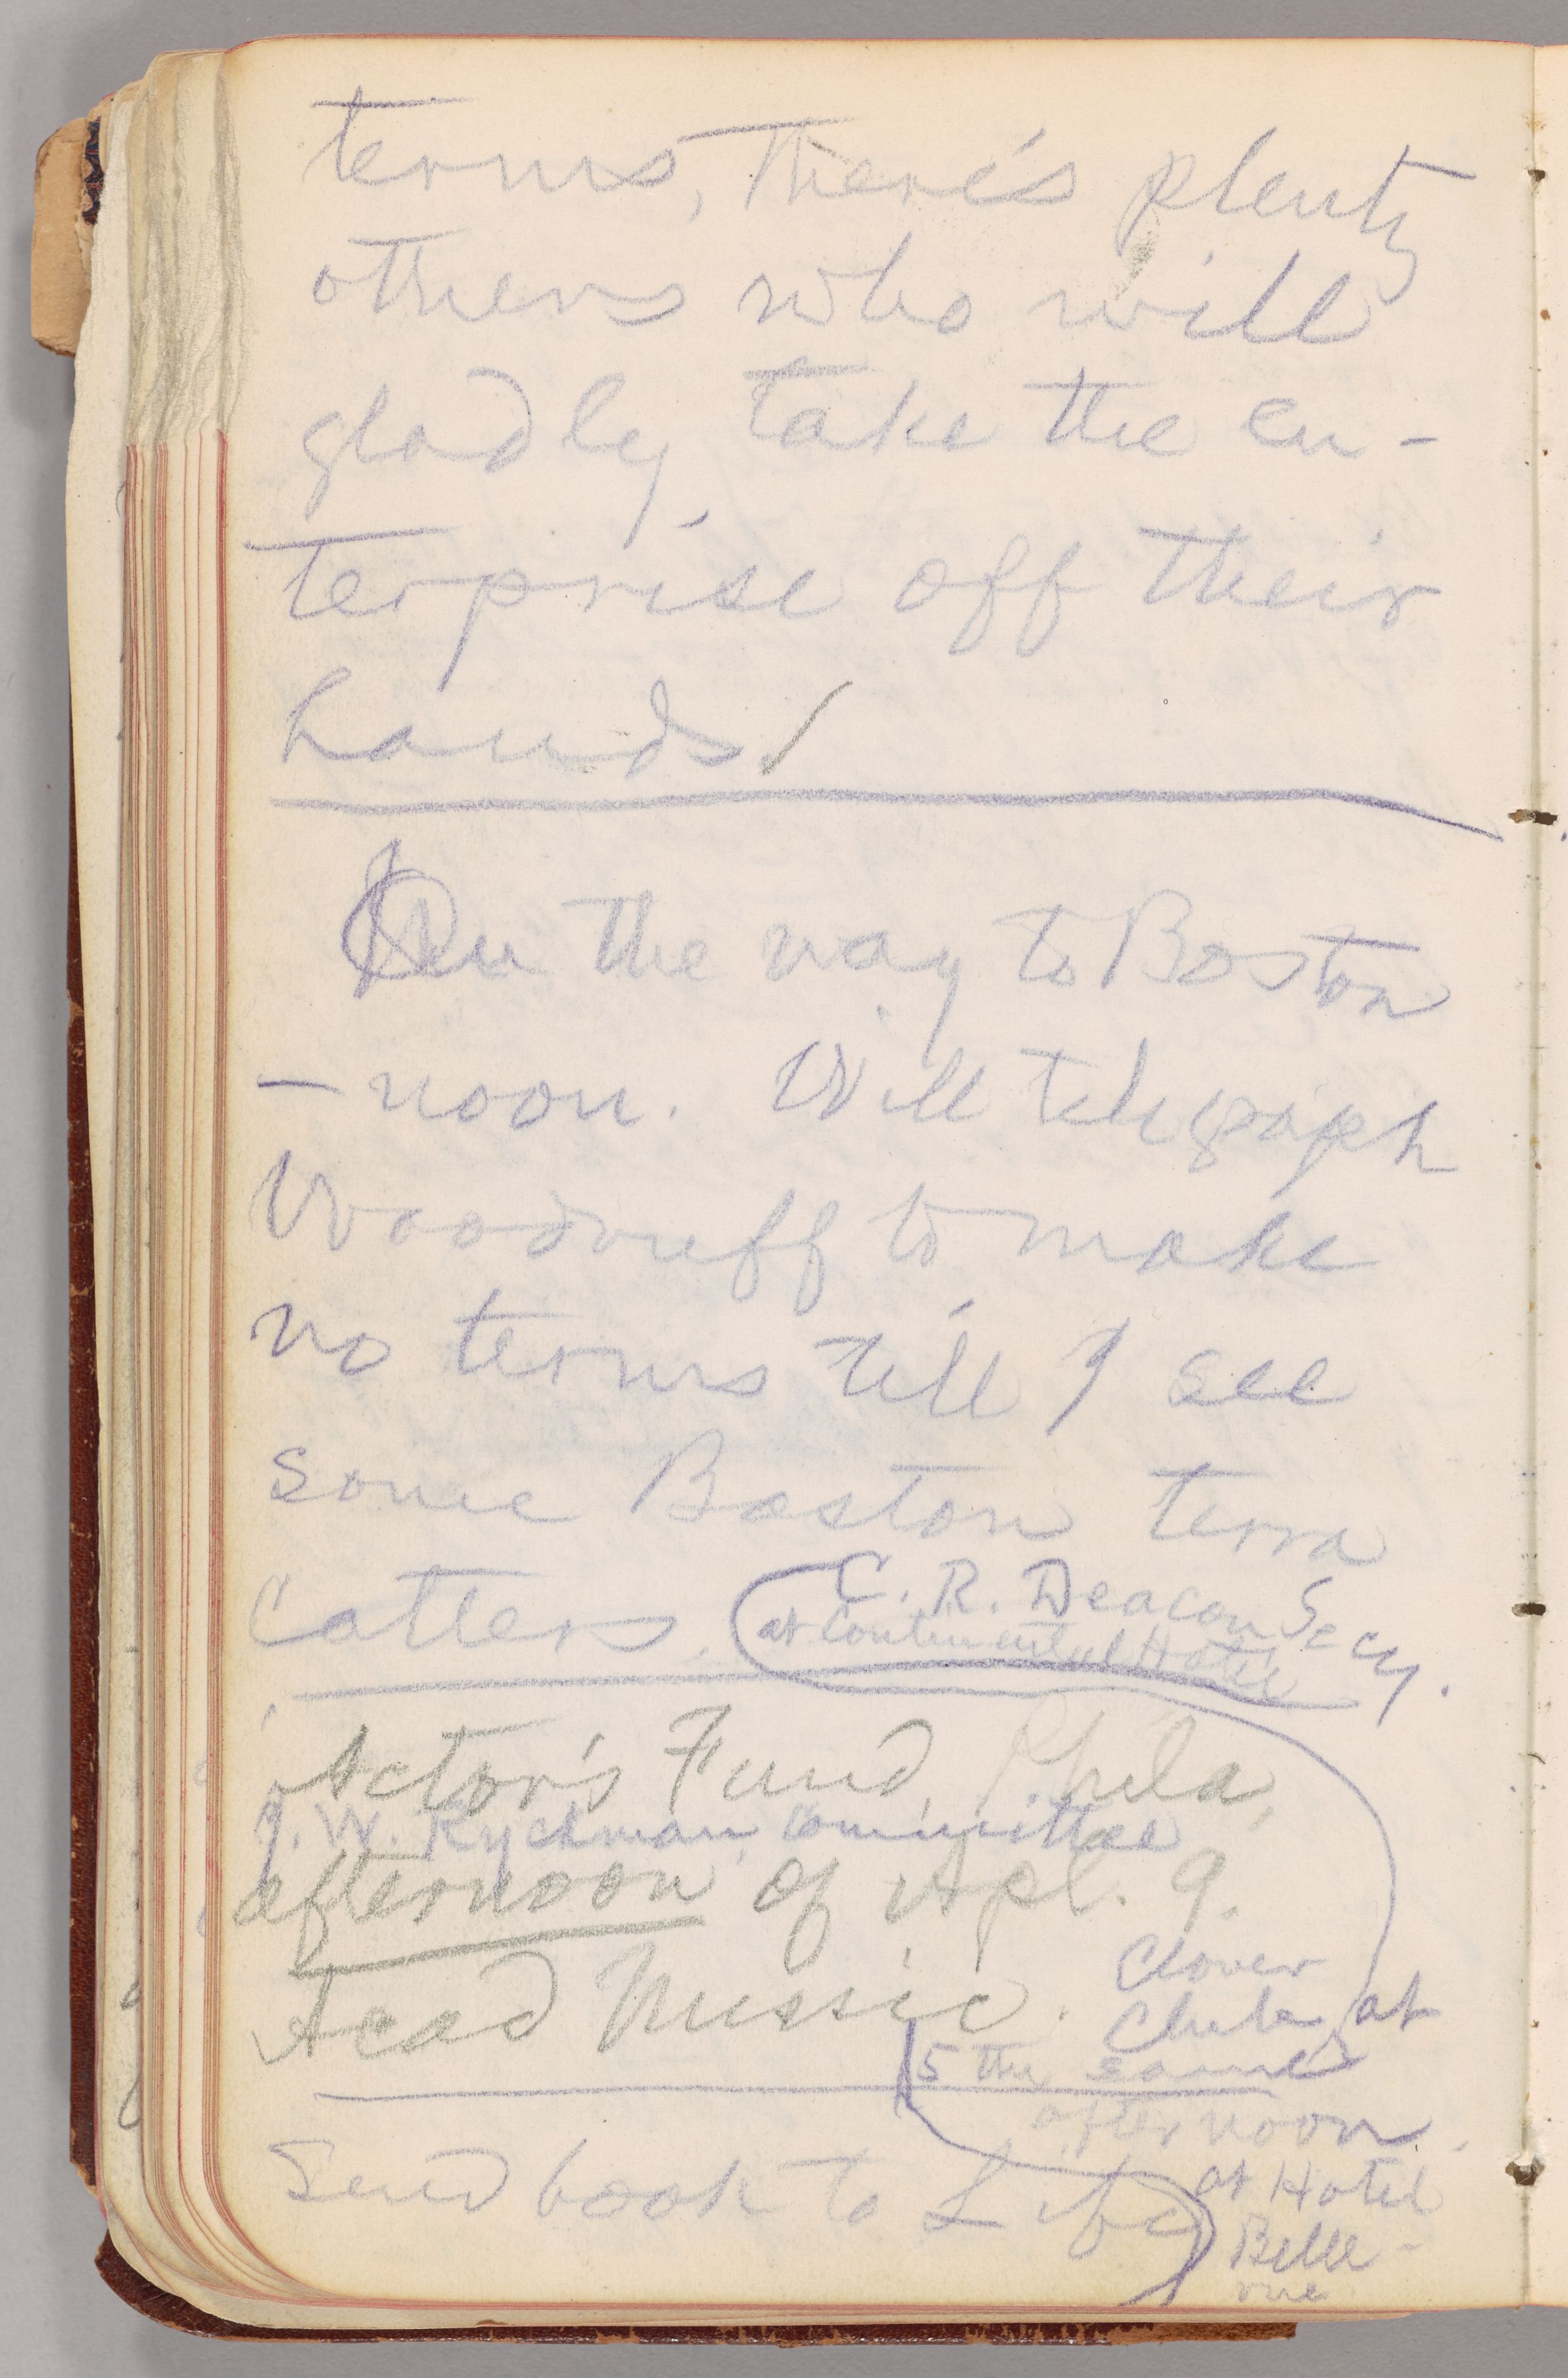 terms, there's plenty
others who will
gladly take the en-
terprise off their
hands.
On the way to Boston
— noon. Will telegraph
Woodruff to make
no terms till I see
some Boston terra
Catters.
C. R. Deacon Secy.
at Continental Hotel
Actor's Fund, Phila,
J. W. Ryckman, committee
afternoon of Apl. 9.
Acad Music.
Clover
Club, at
5 the same
afternoon.
at Hotel
Belle-
vue
Send book to Life